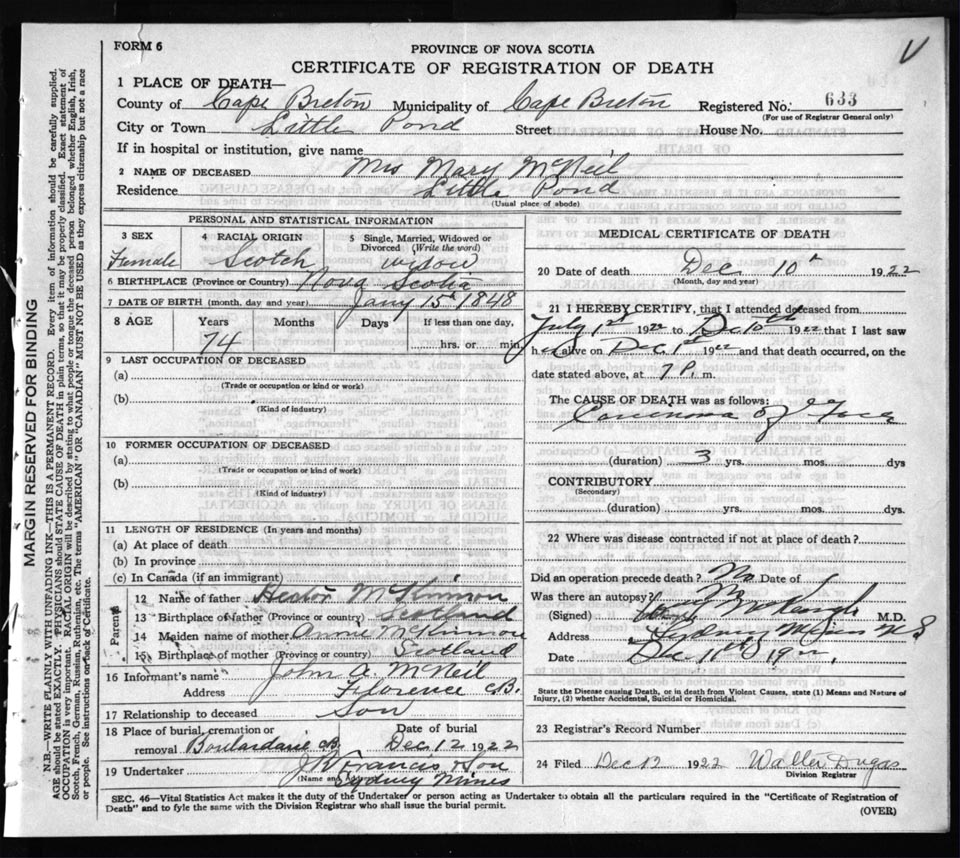 V
FORM 6
PROVINCE OF NOVA SCOTIA
CERTIFICATE OF REGISTRATION OF DEATH
1 PLACE OF DEATH—
County of Cape Breton Municipality of Cape Breton Registered No. 633
(For use of Registrar General only)
City or Town Little Pond Street House No.
If in hospital or institution, give name
2 NAME OF DECEASED Mrs Mary McNeil
Residence Little Pond
(Usual place of abode)
PERSONAL AND STATISTICAL INFORMATION
3 SEX 4 RACIAL ORIGIN 5 Single, Married, Widowed or Divorced (Write the word)
Female Scotch widow
6 BIRTHPLACE (Province or Country) Nova Scotia
7 DATE OF BIRTH (month, day and year) Jany 15 1848
8 AGE Years Months Days If less than one day,
74 hrs. or min.
9 LAST OCCUPATION OF DECEASED
(a)
(Trade or occupation or kind of work)
(b)
(Kind of industry)
10 FORMER OCCUPATION OF DECEASED
(a)
(Trade or occupation or kind of work)
(b)
(Kind of industry)
11 LENGTH OF RESIDENCE (In years and months)
(a) At place of death
(b) In province
(c) In Canada (if an immigrant)
Parents
12 Name of father Hector McKinnon
13 Birthplace of father (Province or country) Scotland
14 Maiden name of mother Annie McKinnon
15 Birthplace of mother (Province or country) Scotland
16 Informant's name John A. McNeil
Address Florence C.B.
17 Relationship to deceased Son
18 Place of burial, cremation or removal Date of burial
Boulardarie CB Dec 12 1922
19 Undertaker J Francis & Son
(Name and Address) Sydney Mines
MEDICAL CERTIFICATE OF DEATH
20 Date of death Dec 10th 1922
(Month, day and year)
21 I HEREBY CERTIFY, that I attended deceased from
July 1st 1922 to Dec 10th 1922 that I last saw
her alive on Dec 1st 1922 and that death occurred, on the
date stated above, at 7 P. m.
The CAUSE OF DEATH was as follows:
Carcinoma of Face
(duration) 3 yrs. mos. dys
CONTRIBUTORY
(Secondary)
(duration) yrs. mos. dys.
22 Where was disease contracted if not at place of death?
Did an operation precede death? No Date of
Was there an autopsy? No
(Signed) M.D.
Address Sydney Mines N S
Date Dec 11th 1922
State the Disease causing Death, or in death from Violent Causes, state (1) Means and Nature of
Injury, (2) whether Accidental, Suicidal or Homicidal.
23 Registrar's Record Number
24 Filed Dec 12 1922 Walter Dugas
Division Registrar
SEC. 46—Vital Statistics Act makes it the duty of the Undertaker or person acting as Undertaker to obtain all the particulars required in the "Certificate of Registration of
Death" and to fyle the same with the Division Registrar who shall issue the burial permit.
(OVER)
MARGIN RESERVED FOR BINDING
N.B.—WRITE PLAINLY WITH UNFADING INK—THIS IS A PERMANENT RECORD. Every item of information should be carefully supplied.
AGE should be stated EXACTLY. PHYSICIANS should STATE CAUSE OF DEATH in plain terms, so that it may be properly classified. Exact statement of
OCCUPATION is very important. RACIAL ORIGIN will be described by stating to what people or tongue the deceased person belonged whether English, Irish,
Scotch, French, German, Russian, Ruthenian, etc. The terms "AMERICAN" OR "CANADIAN" MUST NOT BE USED as they express citizenship but not a race
or people. See instructions on back of Certificate.